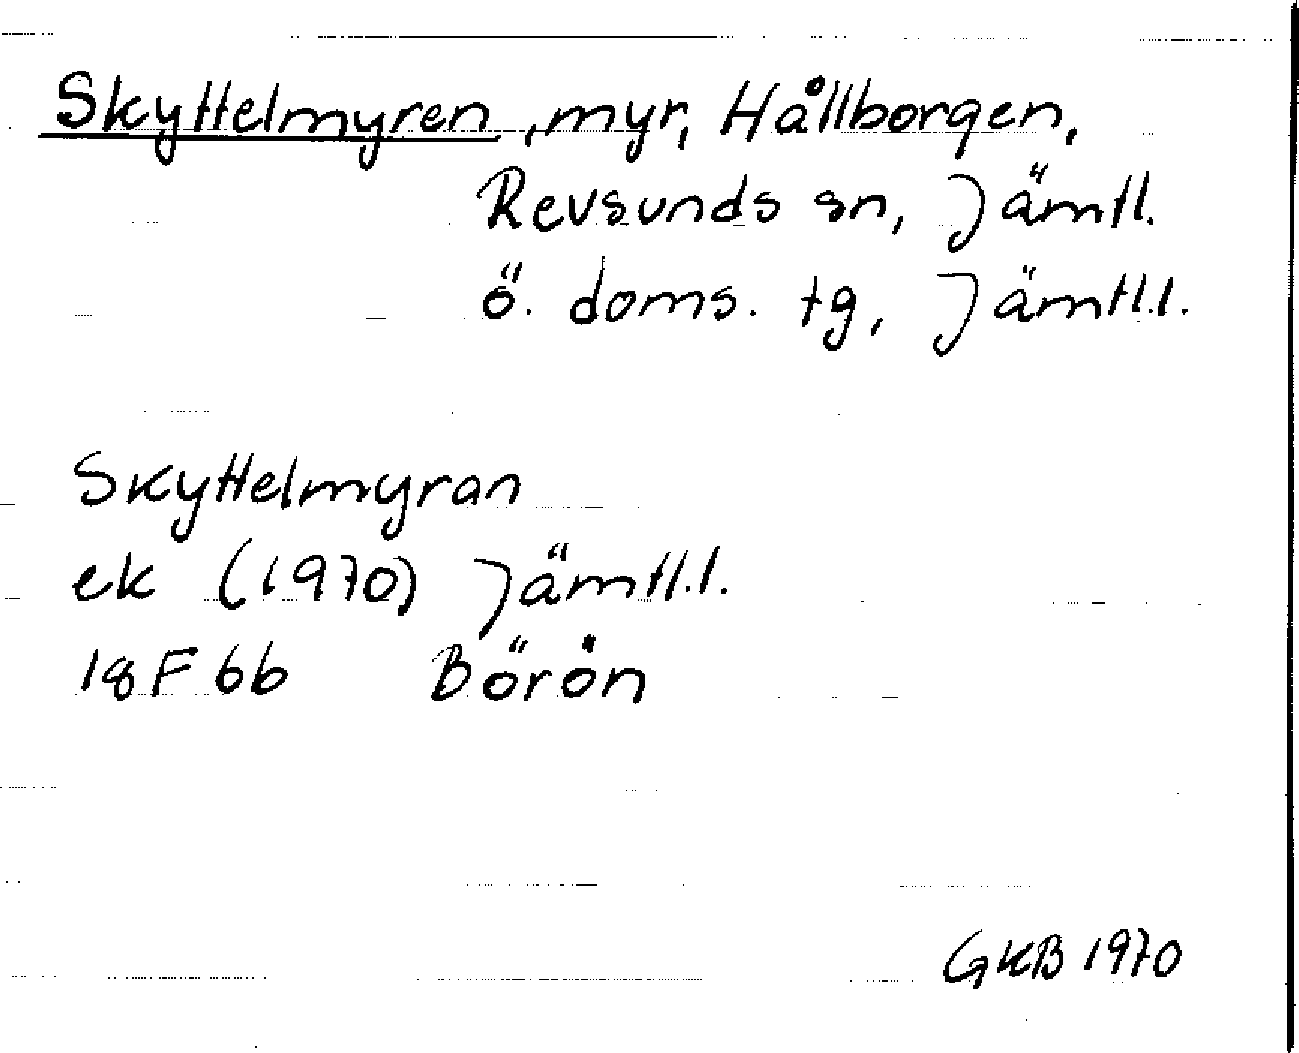 Skyttelmyren, myr, Hållborgen,
Revsunds sn, Jämtl.
ö. doms. tg, Jämtl.l.
Skyttelmyran
ek (1970) Jämtl.l.
18F 6b Börön
GKB 1970